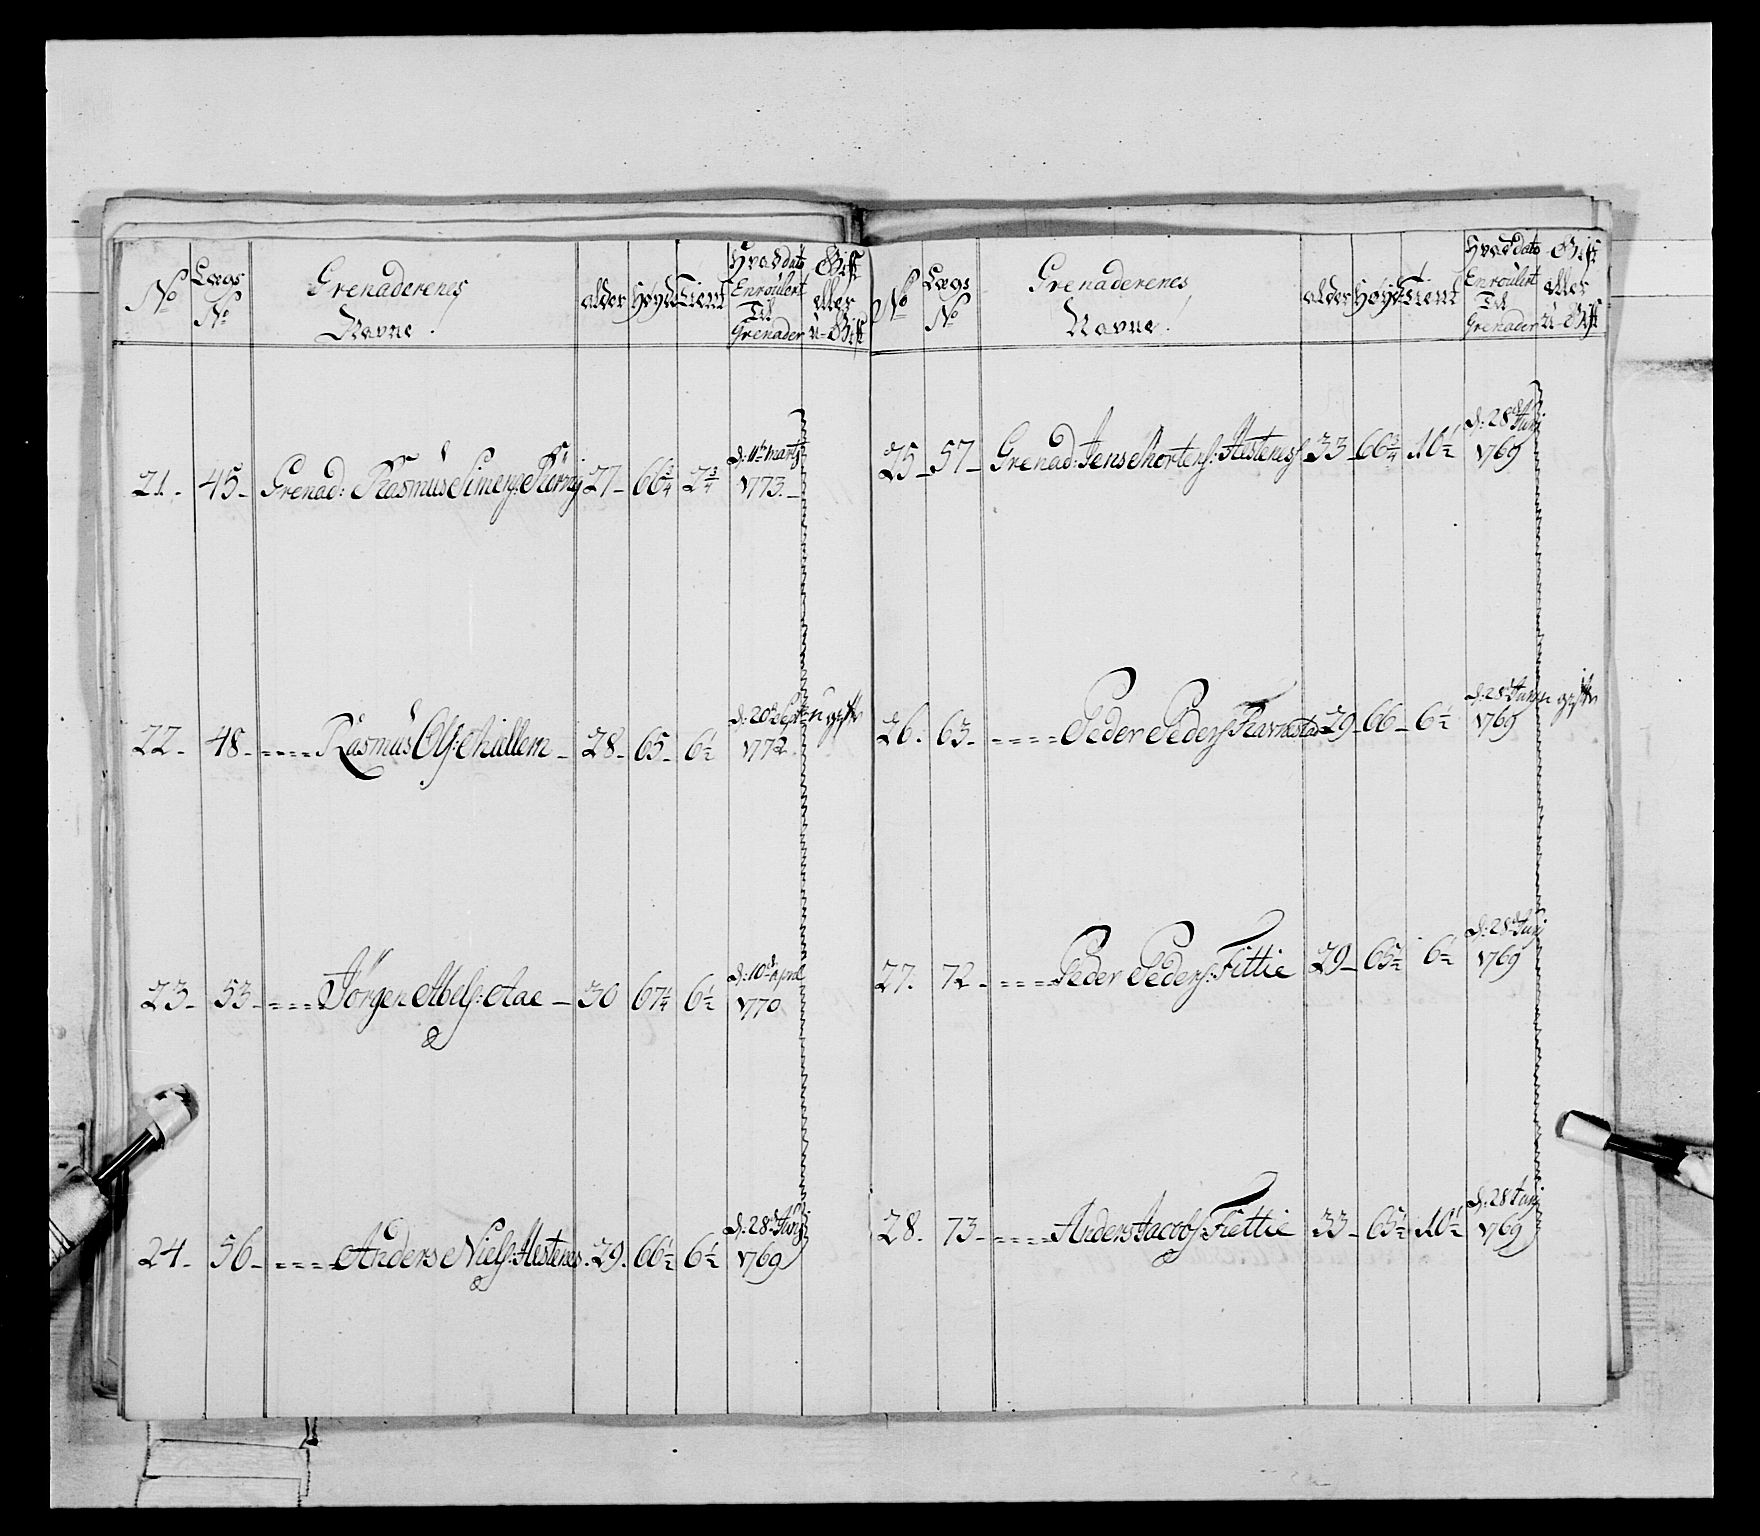 No
Lægs No
Grenaderenes Navne.
alder
Høyde
Tient
Hvad dato Enroulert Til Grenader
Gift eller u-Gift
21. 45. Grenad: Rasmus Simens: 27 66 3/4 2 3/4 d: 11te Marty 1773.
22. 48. ---- Rasmus Ols: 28. 65. 6 1/2 d: 20de Sept: 1772. u gift
23. 53. ---- Jørgen Abels: Aae 30 67 1/4 6 1/2 d: 10de April 1770
24. 56. ---- Anders Niels: Hestenes. 29. 66 1/2 6 1/2 d: 28de Junj 1769
No
Lægs No
Grenaderenes Navne.
alder
Høyde
Tient
Hvad dato Enroulert Til Grenader
Gift eller u-Gift
25 57 Grenad: Jens Mortens: Hestenes 33 66 3/4 10 1/2 d: 28de Junj 1769
26. 63. ---- Peder Peders 29 66 6 1/2 d: 28de Junj 1769 u gift
27. 72. ---- Peder Peders: Fittie 29 65 1/2 6 1/2 d: 28de Junj 1769
28. 73. ---- Anders Jacobs: Fiettie 33 65 1/2 10 1/2 d: 28 Junj 1769